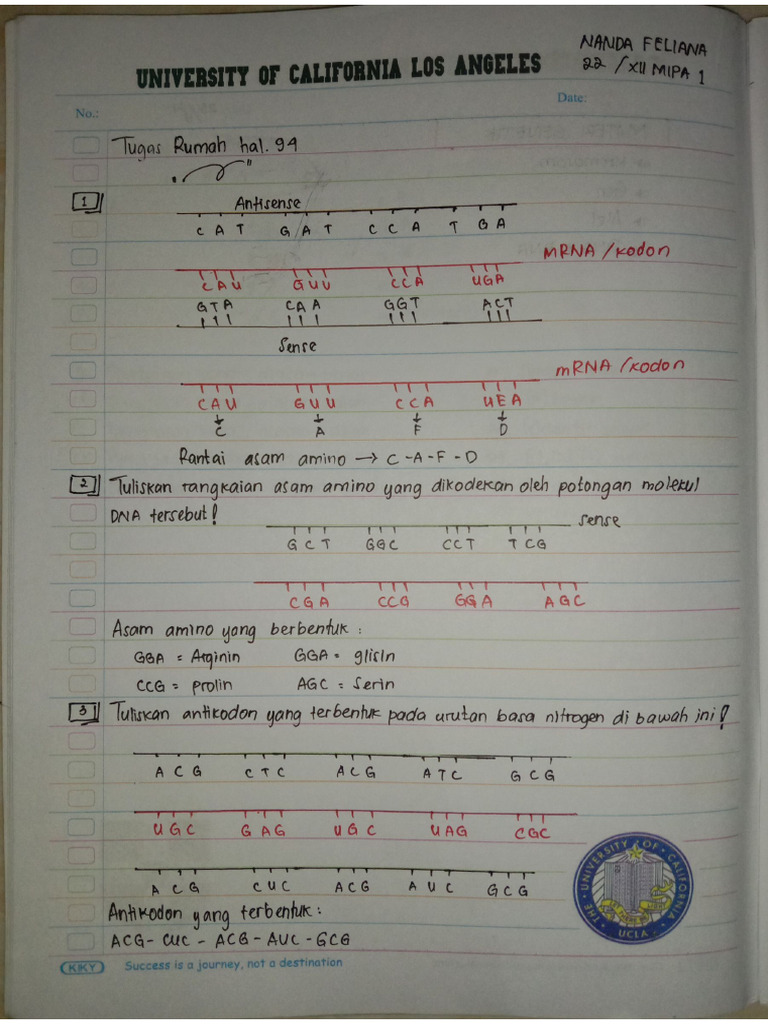 NANDA FELIANA
22 / XII MIPA 1
UNIVERSITY OF CALIFORNIA LOS ANGELES
No.:
Date:
Tugas Rumah hal. 94
1
Antisense
CAT GAT CCA TGA
MRNA /kodon
CAU GUU CCA UGA
GTA CAA GGT ACT
Sense
mRNA /kodon
CAU GUU CCA UEA
C A F D
Rantai asam amino → C-A-F-D
2 Tuliskan rangkaian asam amino yang dikodekan oleh potongan molekul
DNA tersebut!
sense
GCT GGC CCT TCG
CGA CCG GGA AGC
Asam amino yang berbentuk :
GGA = Arginin GGA = glisin
CCG = prolin AGC = Serin
3 Tuliskan antikodon yang terbentuk pada urutan basa nitrogen di bawah ini!
ACG CTC ACG ATC GCG
UGC GAG UGC UAG CGC
ACG CUC ACG AUC GCG
Antikodon yang terbentuk :
ACG - CUC - ACG - AUC - GCG
THE · UNIVERSITY · OF · CALIFORNIA ·
UCLA
KIKY Success is a journey, not a destination